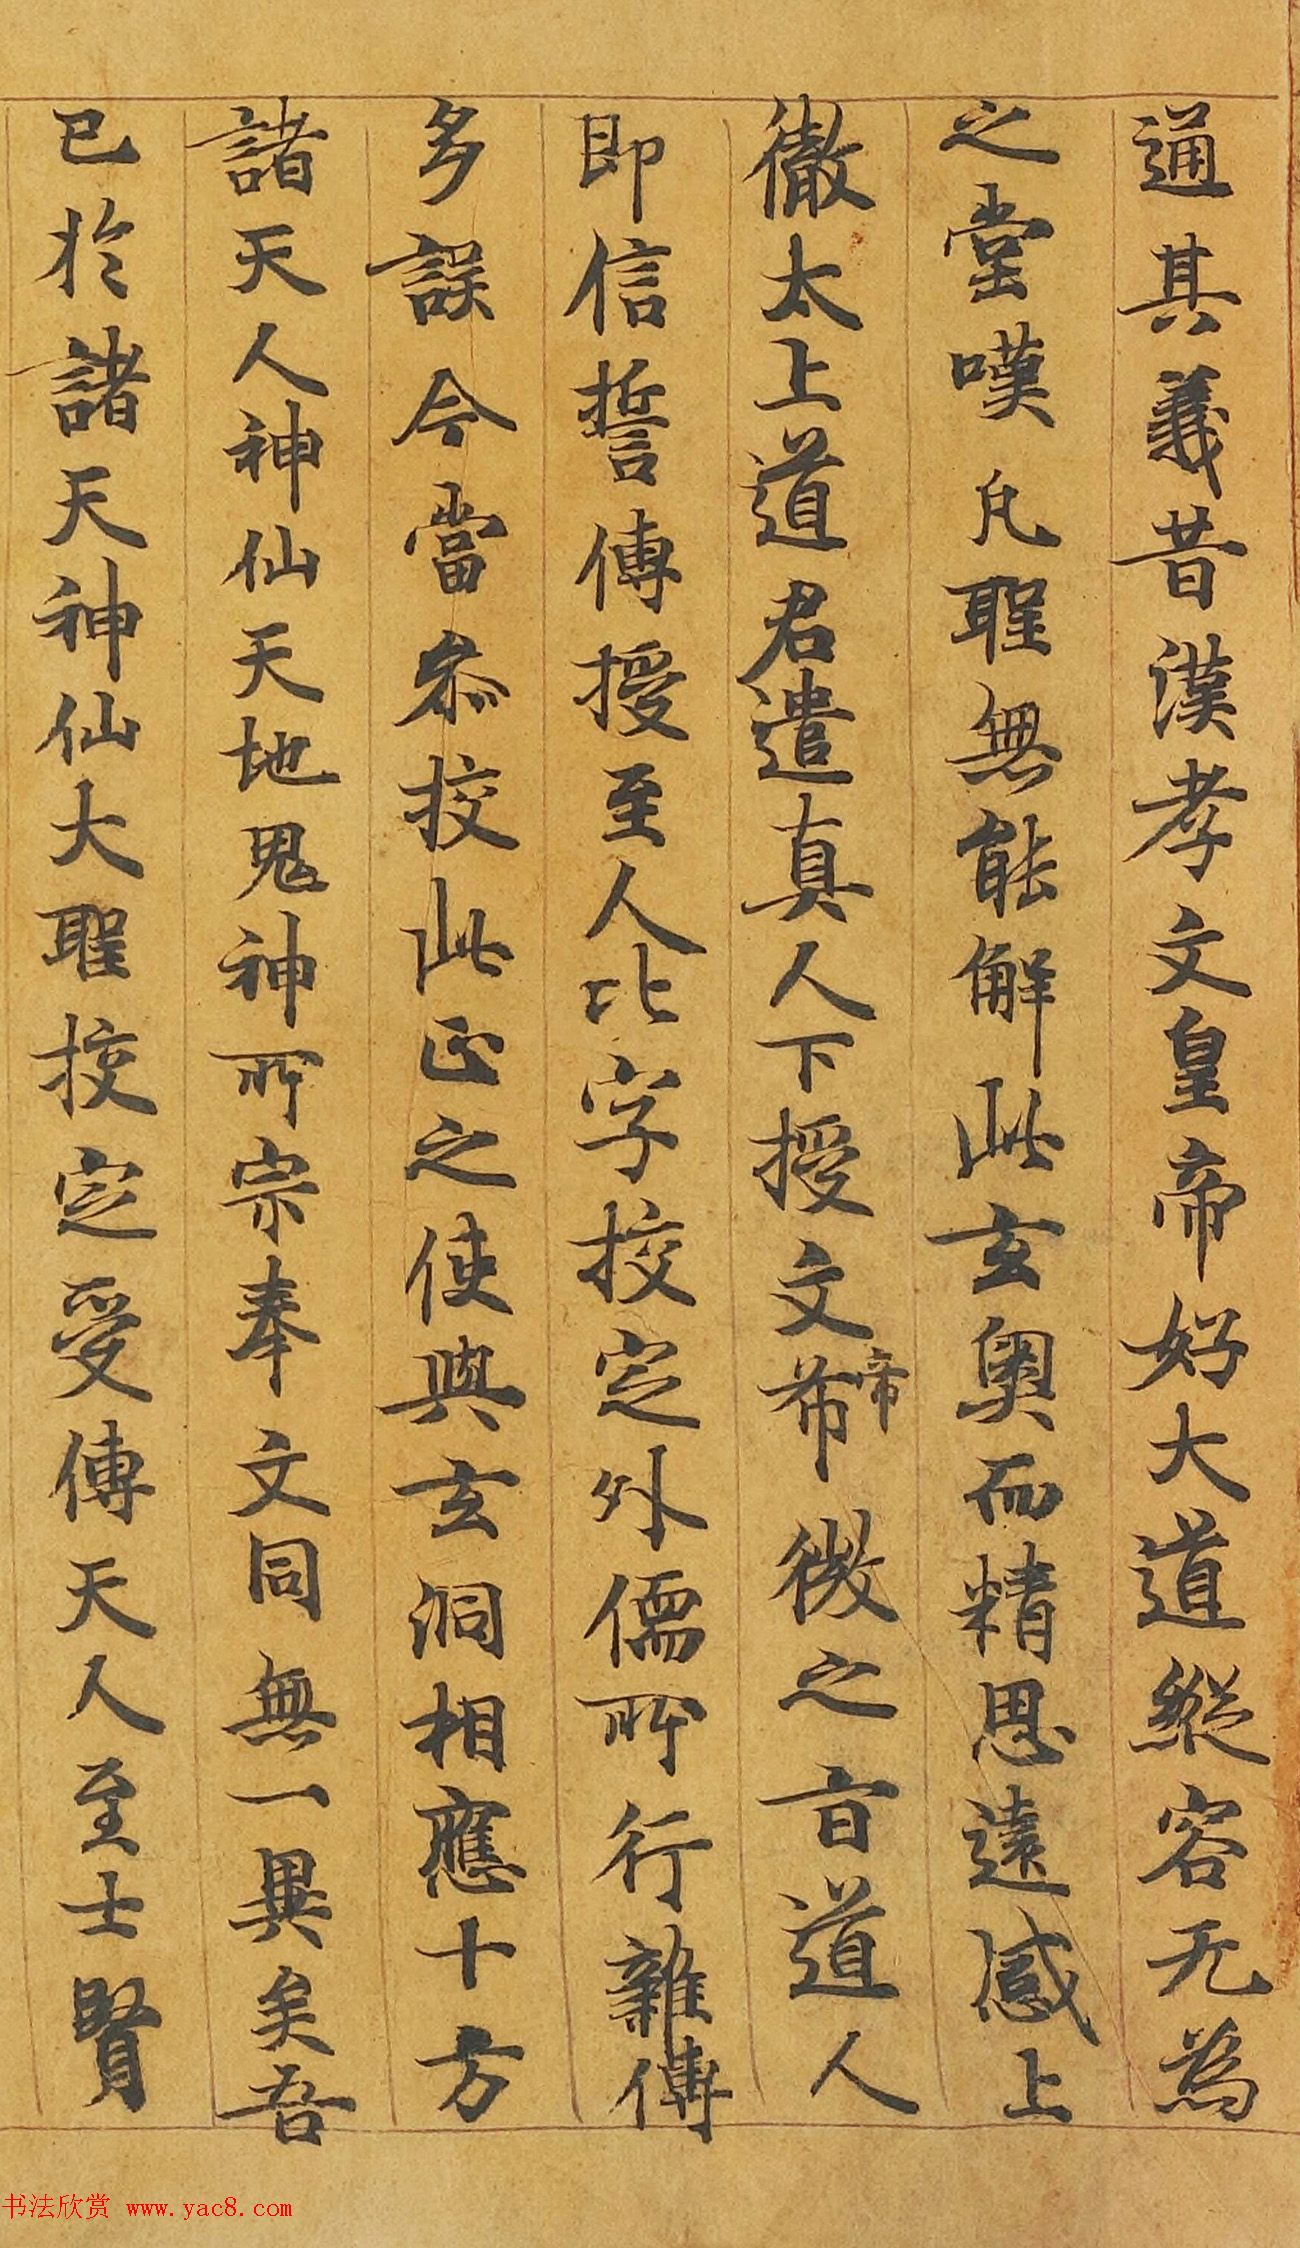 通其義昔漢孝文皇帝好大道縱容无為
之堂嘆凡聖無能解此玄奧而精思遠感上
徹太上道君遣真人下授文希帝微之旨道人
即信誓傳授至人比字挍定外儒所行雜傳
多誤今當參挍此正之使與玄洞相應十方
諸天人神仙天地鬼神所宗奉文同無一異矣吾
已於諸天神仙大聖挍定受傳天人至士賢
书法欣赏 www.yac8.com